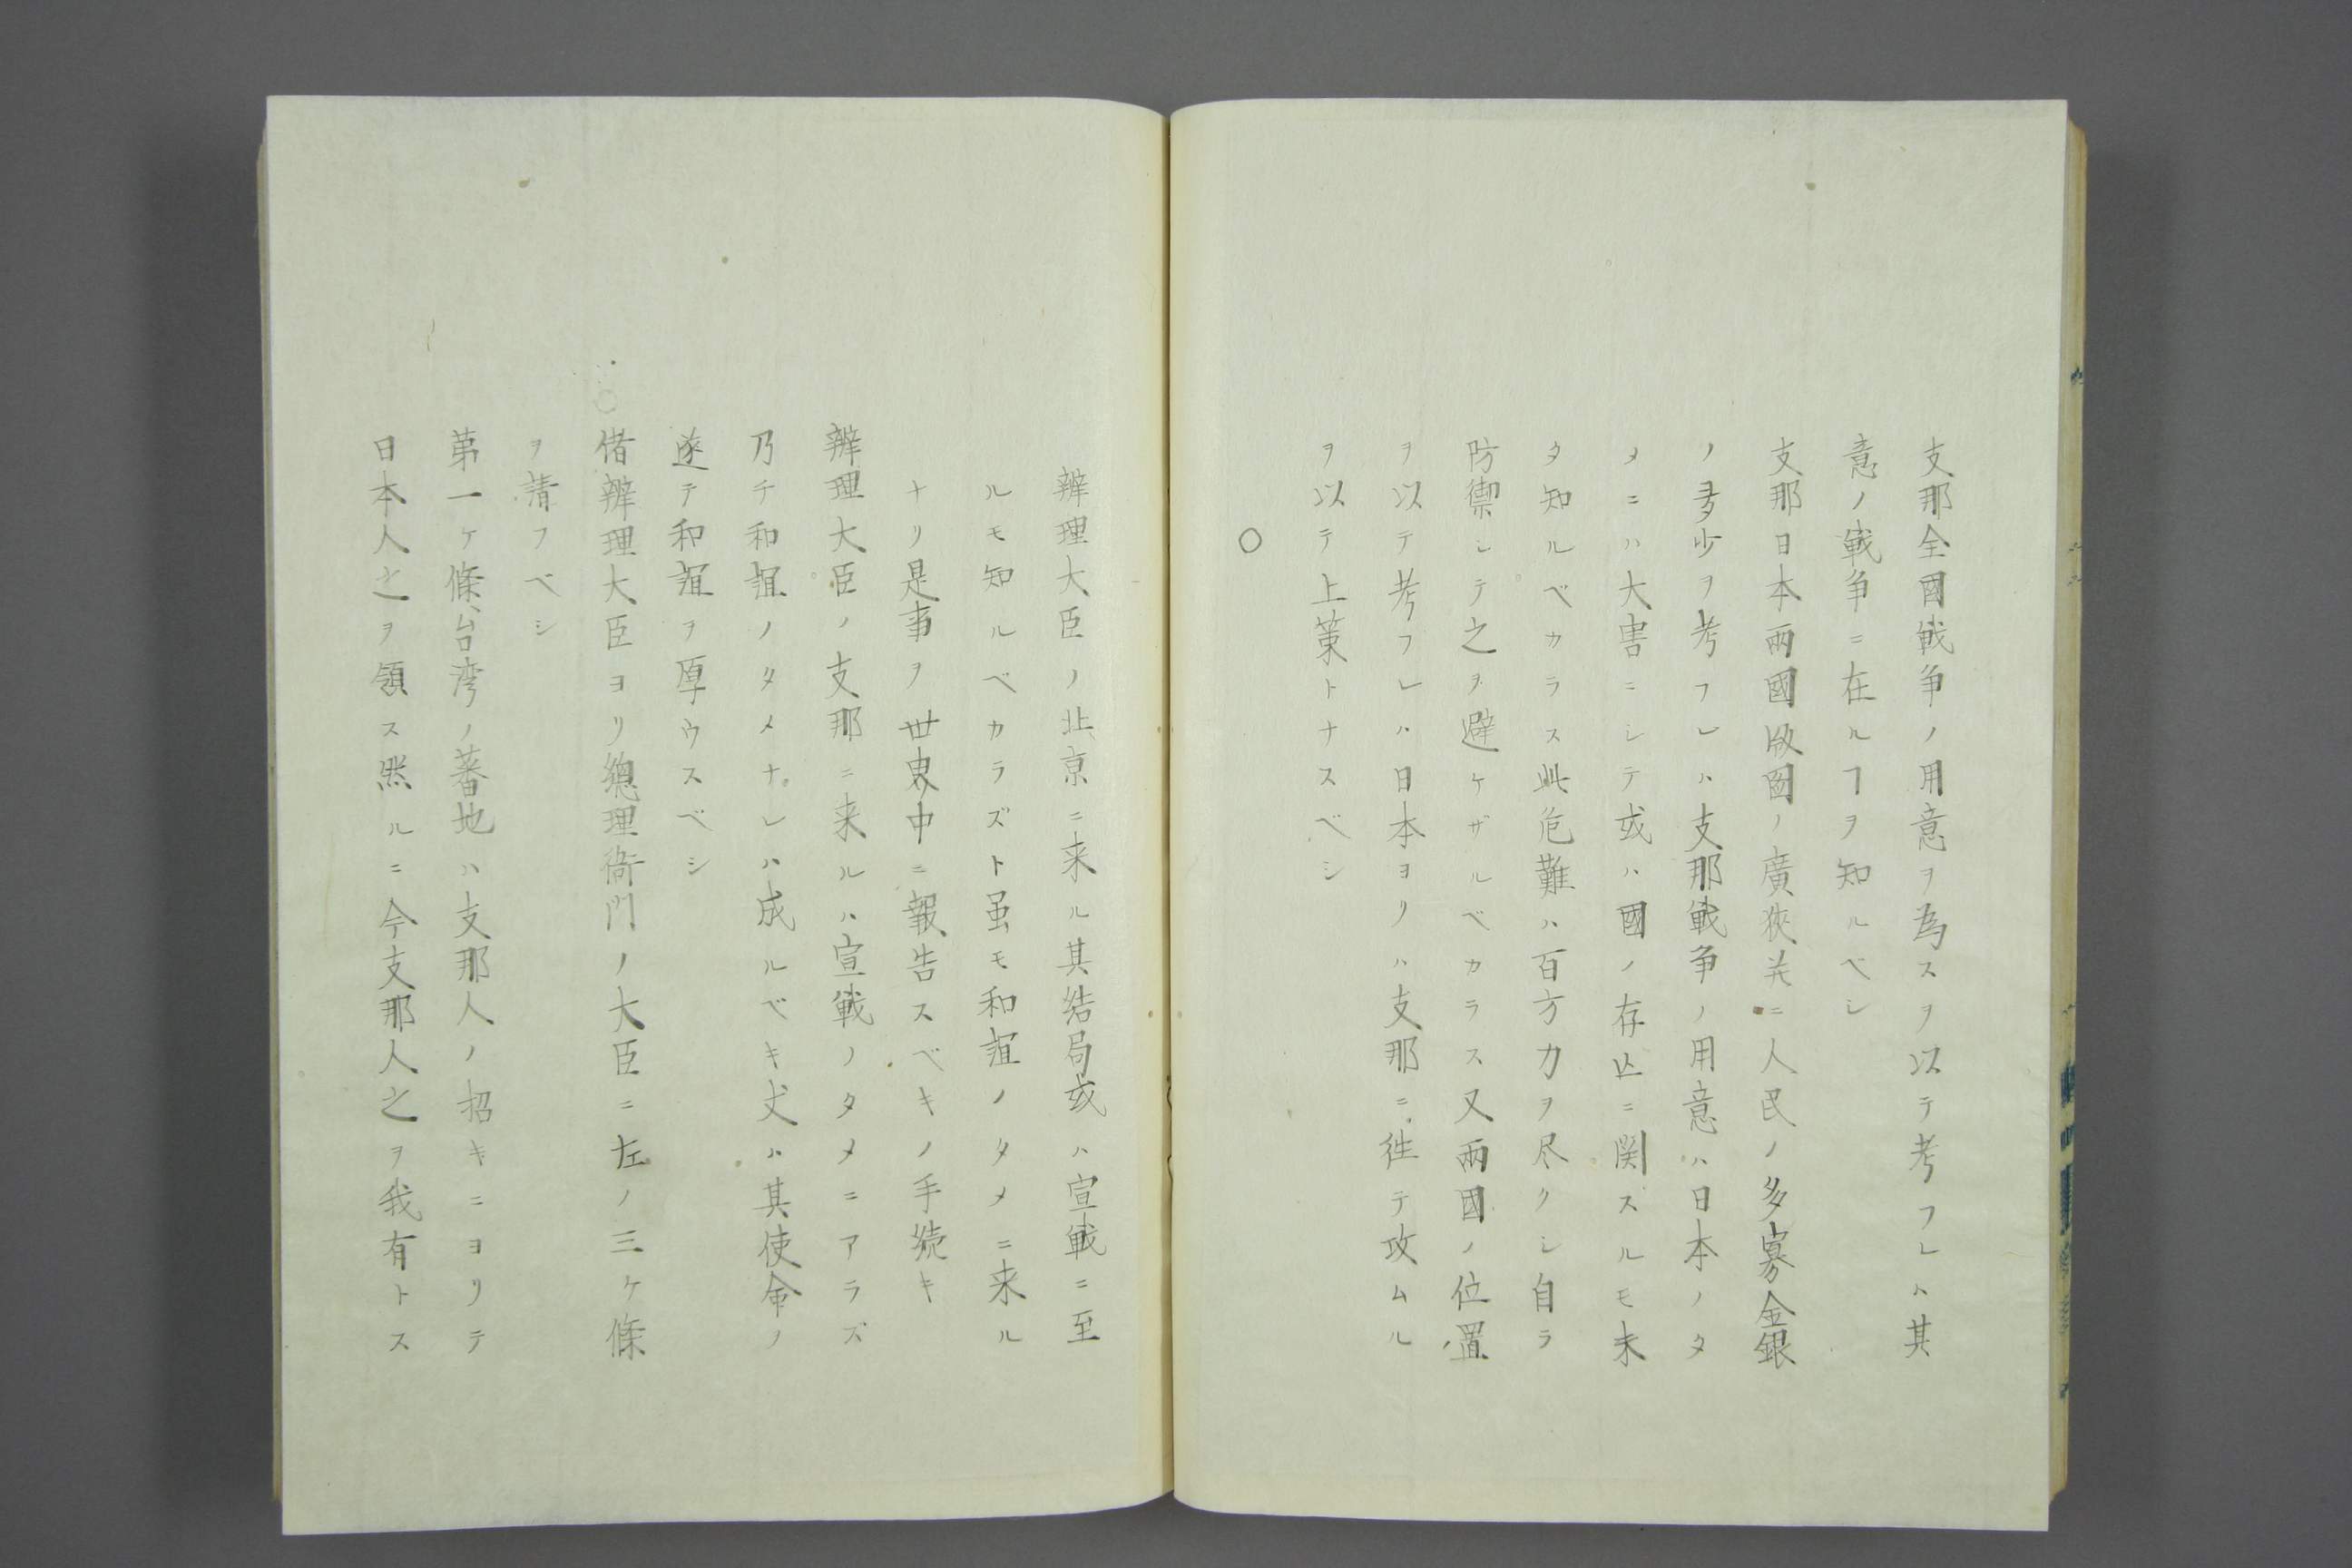 支那全國戦争ノ用意ヲ為スヲ以テ考フレハ其
意ノ戦争ニ在ルヿヲ知ルベシ
支那日本兩國版圖ノ廣狹并ニ人民ノ多寡金銀
ノ多少ヲ考フレハ支那戦争ノ用意ハ日本ノタ
メニハ大害ニシテ或ハ國ノ存亡ニ関スルモ未
タ知ルベカラス此危難ハ百方力ヲ尽クシ自ラ
防禦シテ之ヲ避ケザルベカラス又兩國ノ位置
ヲ以テ考フレハ日本ヨリハ支那ニ徃テ攻ムル
ヲ以テ上策トナスベシ
○
辨理大臣ノ北京ニ来ル其結局或ハ宣戦ニ至
ルモ知ルベカラズト虽モ和誼ノタメニ来ル
ナリ是事ヲ世界中ニ報告スベキノ手続キ
辨理大臣ノ支那ニ来ルハ宣戦ノタメニアラズ
乃チ和誼ノタメナレハ成ルベキ丈ハ其使命ノ
遂テ和誼ヲ厚ウスベシ
○偖辨理大臣ヨリ總理衙門ノ大臣ニ左ノ三ケ條
ヲ請フベシ
第一ケ條、台湾ノ蕃地ハ支那人ノ招キニヨリテ
日本人之ヲ領ス然ルニ今支那人之ヲ我有トス